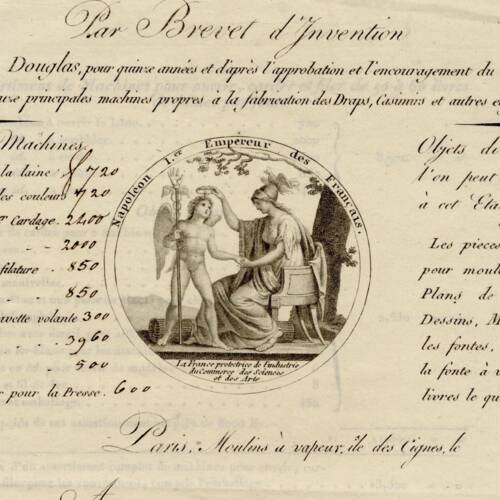 Par Brevet d'Invention
Douglas, pour quinze années et d'après l'approbation et l'encouragement du
principales machines propres à la fabrication des Draps, Casimirs et autres
Machines.
la laine. 720
les couleurs 720
Cardage. 2400
2000
filature . 850
850
navette volante 300
3960
500
pour la Presse. 600
Napoléon I.er Empereur des Français.
La France protectrice de l'industrie
du Commerce des Sciences
et des Arts
Objets di
l'on peut
à cet Eta
Les pieces
pour moul
Plans de
Dessins, M
les fontes,
la fonte à
livres le qu
Paris, Moulins à vapeur, île des Cignes, le